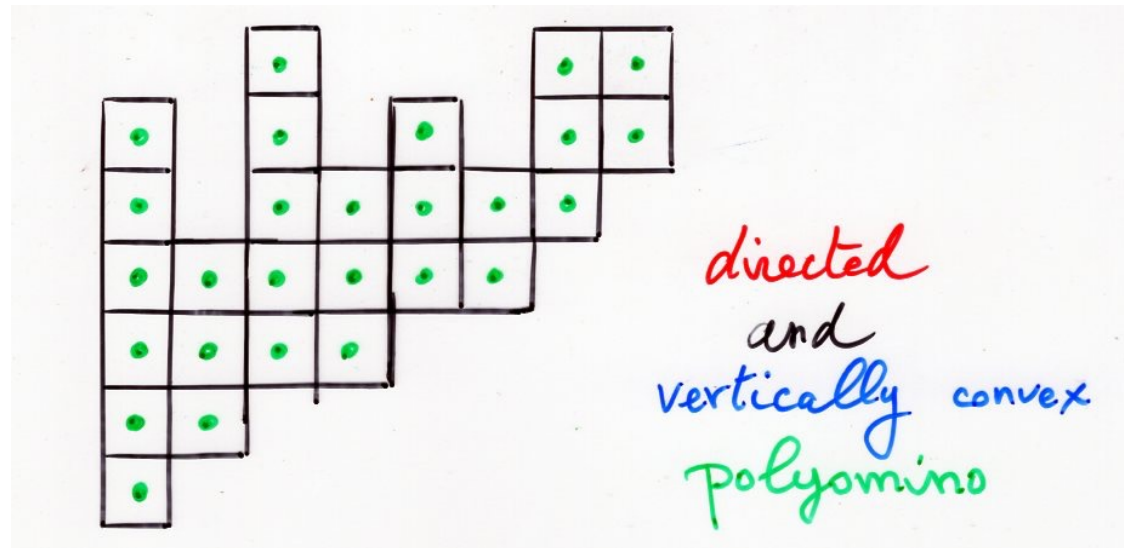 directed
and
vertically convex
polyomino